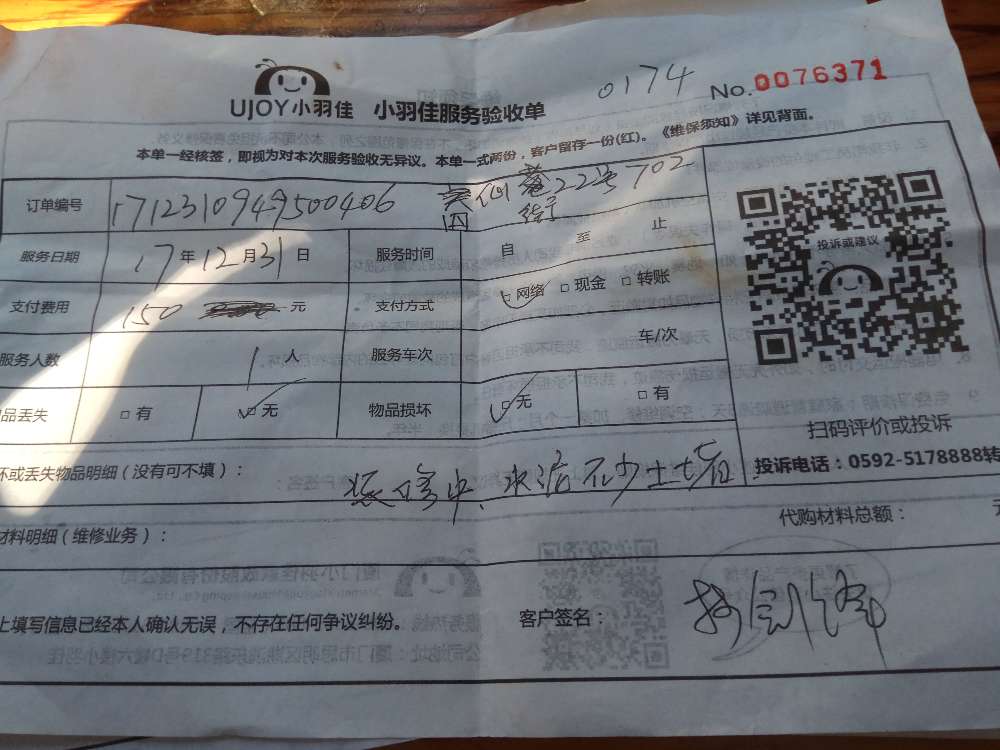 0174 No.0076371
UJOY小羽佳 小羽佳服务验收单
本单一经核签，即视为对本次服务验收无异议。本单一式两份，客户留存一份(红)。《维保须知》详见背面。
订单编号 1712310949500406 仙 22号702
服务日期 17年12月31日 服务时间 自 至 止
投诉或建议
支付费用 150 元 支付方式 网络 现金 转账
服务人数 1人 服务车次 车/次
物品丢失 有 无 物品损坏 无 有
扫码评价或投诉
投诉电话：0592-5178888转
坏或丢失物品明细（没有可不填）： 装修中、水泥
代购材料总额：
材料明细（维修业务）：
上填写信息已经本人确认无误，不存在任何争议纠纷。 客户签名：